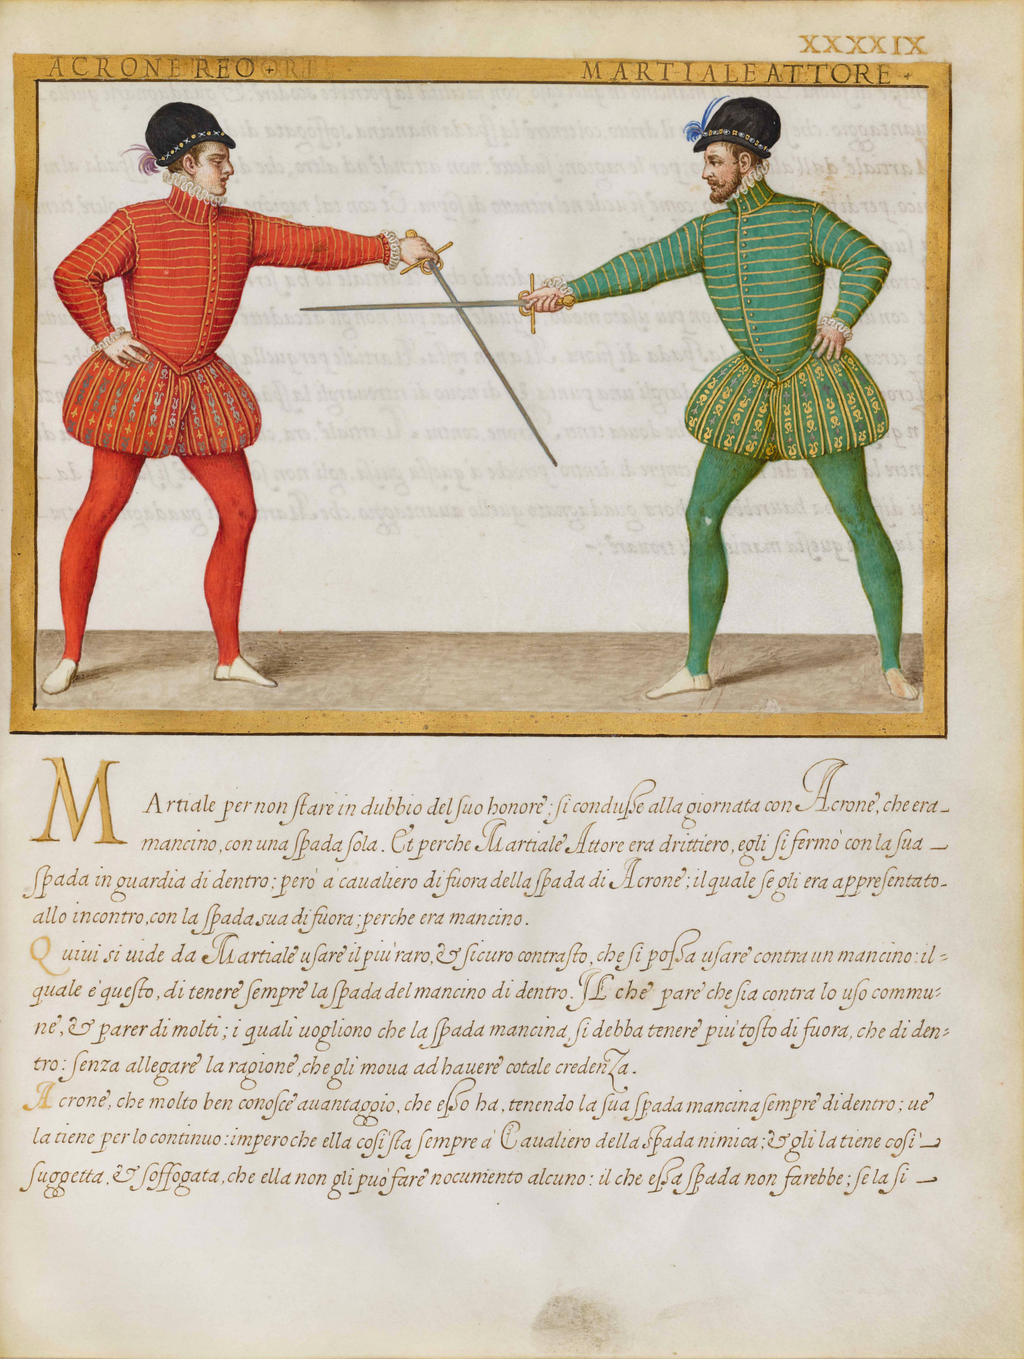 XXXXIX
ACRONE REO +
MARTIALE ATTORE +
MArtiale per non stare in dubbio del suo honore; si condusse alla giornata con Acrone, che era
mancino, con una spada sola. Et perche Martiale Attore era drittiero, egli si fermò con la sua
spada in guardia di dentro; però a cavaliero di fuora della spada di Acrone; il quale se gli era appresentato
allo incontro, con la spada sua di fuora; perche era mancino.
Quivi si uide da Martiale usare il più raro, & sicuro contrasto, che si possa usare contra un mancino: il=
quale e' questo, di tenere sempre la spada del mancino di dentro. Il che pare che sia contra lo uso commu=
ne, & parer di molti; i quali uogliono che la spada mancina, si debba tenere più tosto di fuora, che di den=
tro: senza allegare la ragione, che gli moua ad hauere cotale credenza.
Acrone, che molto ben conosce auantaggio, che esso ha, tenendo la sua spada mancina sempre di dentro; ue
la tiene per lo continuo: imperoche ella così sta sempre a' Caualiero della spada nimica; & gli la tiene così
suggetta, & soffogata, che ella non gli può fare nocumento alcuno: il che essa spada non farebbe; se la si